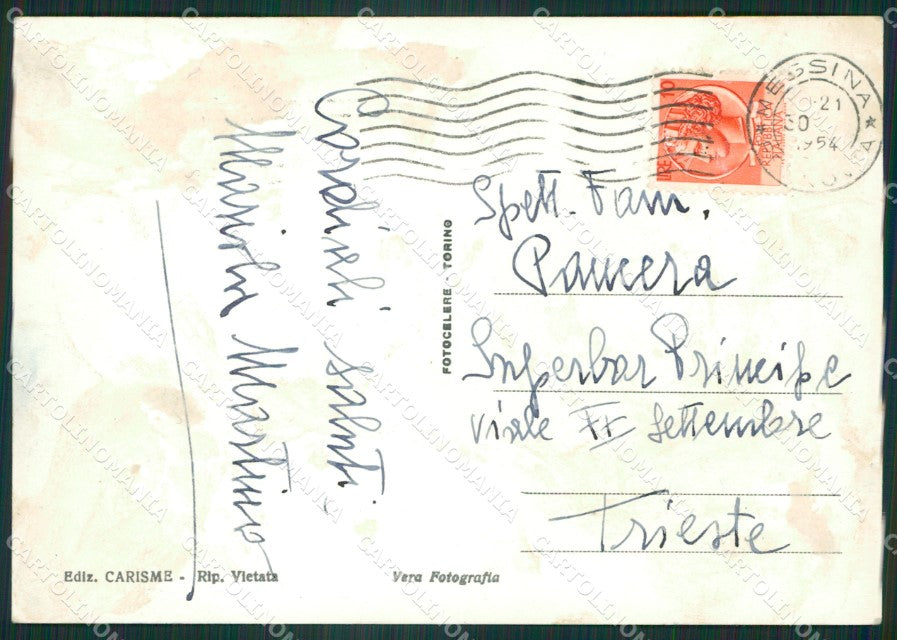 Cordiali saluti
Mariola Martino
Spett. Fam.
Pancera
Superbar Principe
Viale XX Settembre
Trieste
FOTOCELERE TORINO
Ediz. CARISME - Rip. Vietata
Vera Fotografia
MESSINA
-21
30
1954
LIRE 10
REPUBBLICA
ITALIANA
CARTOLINOMANIA